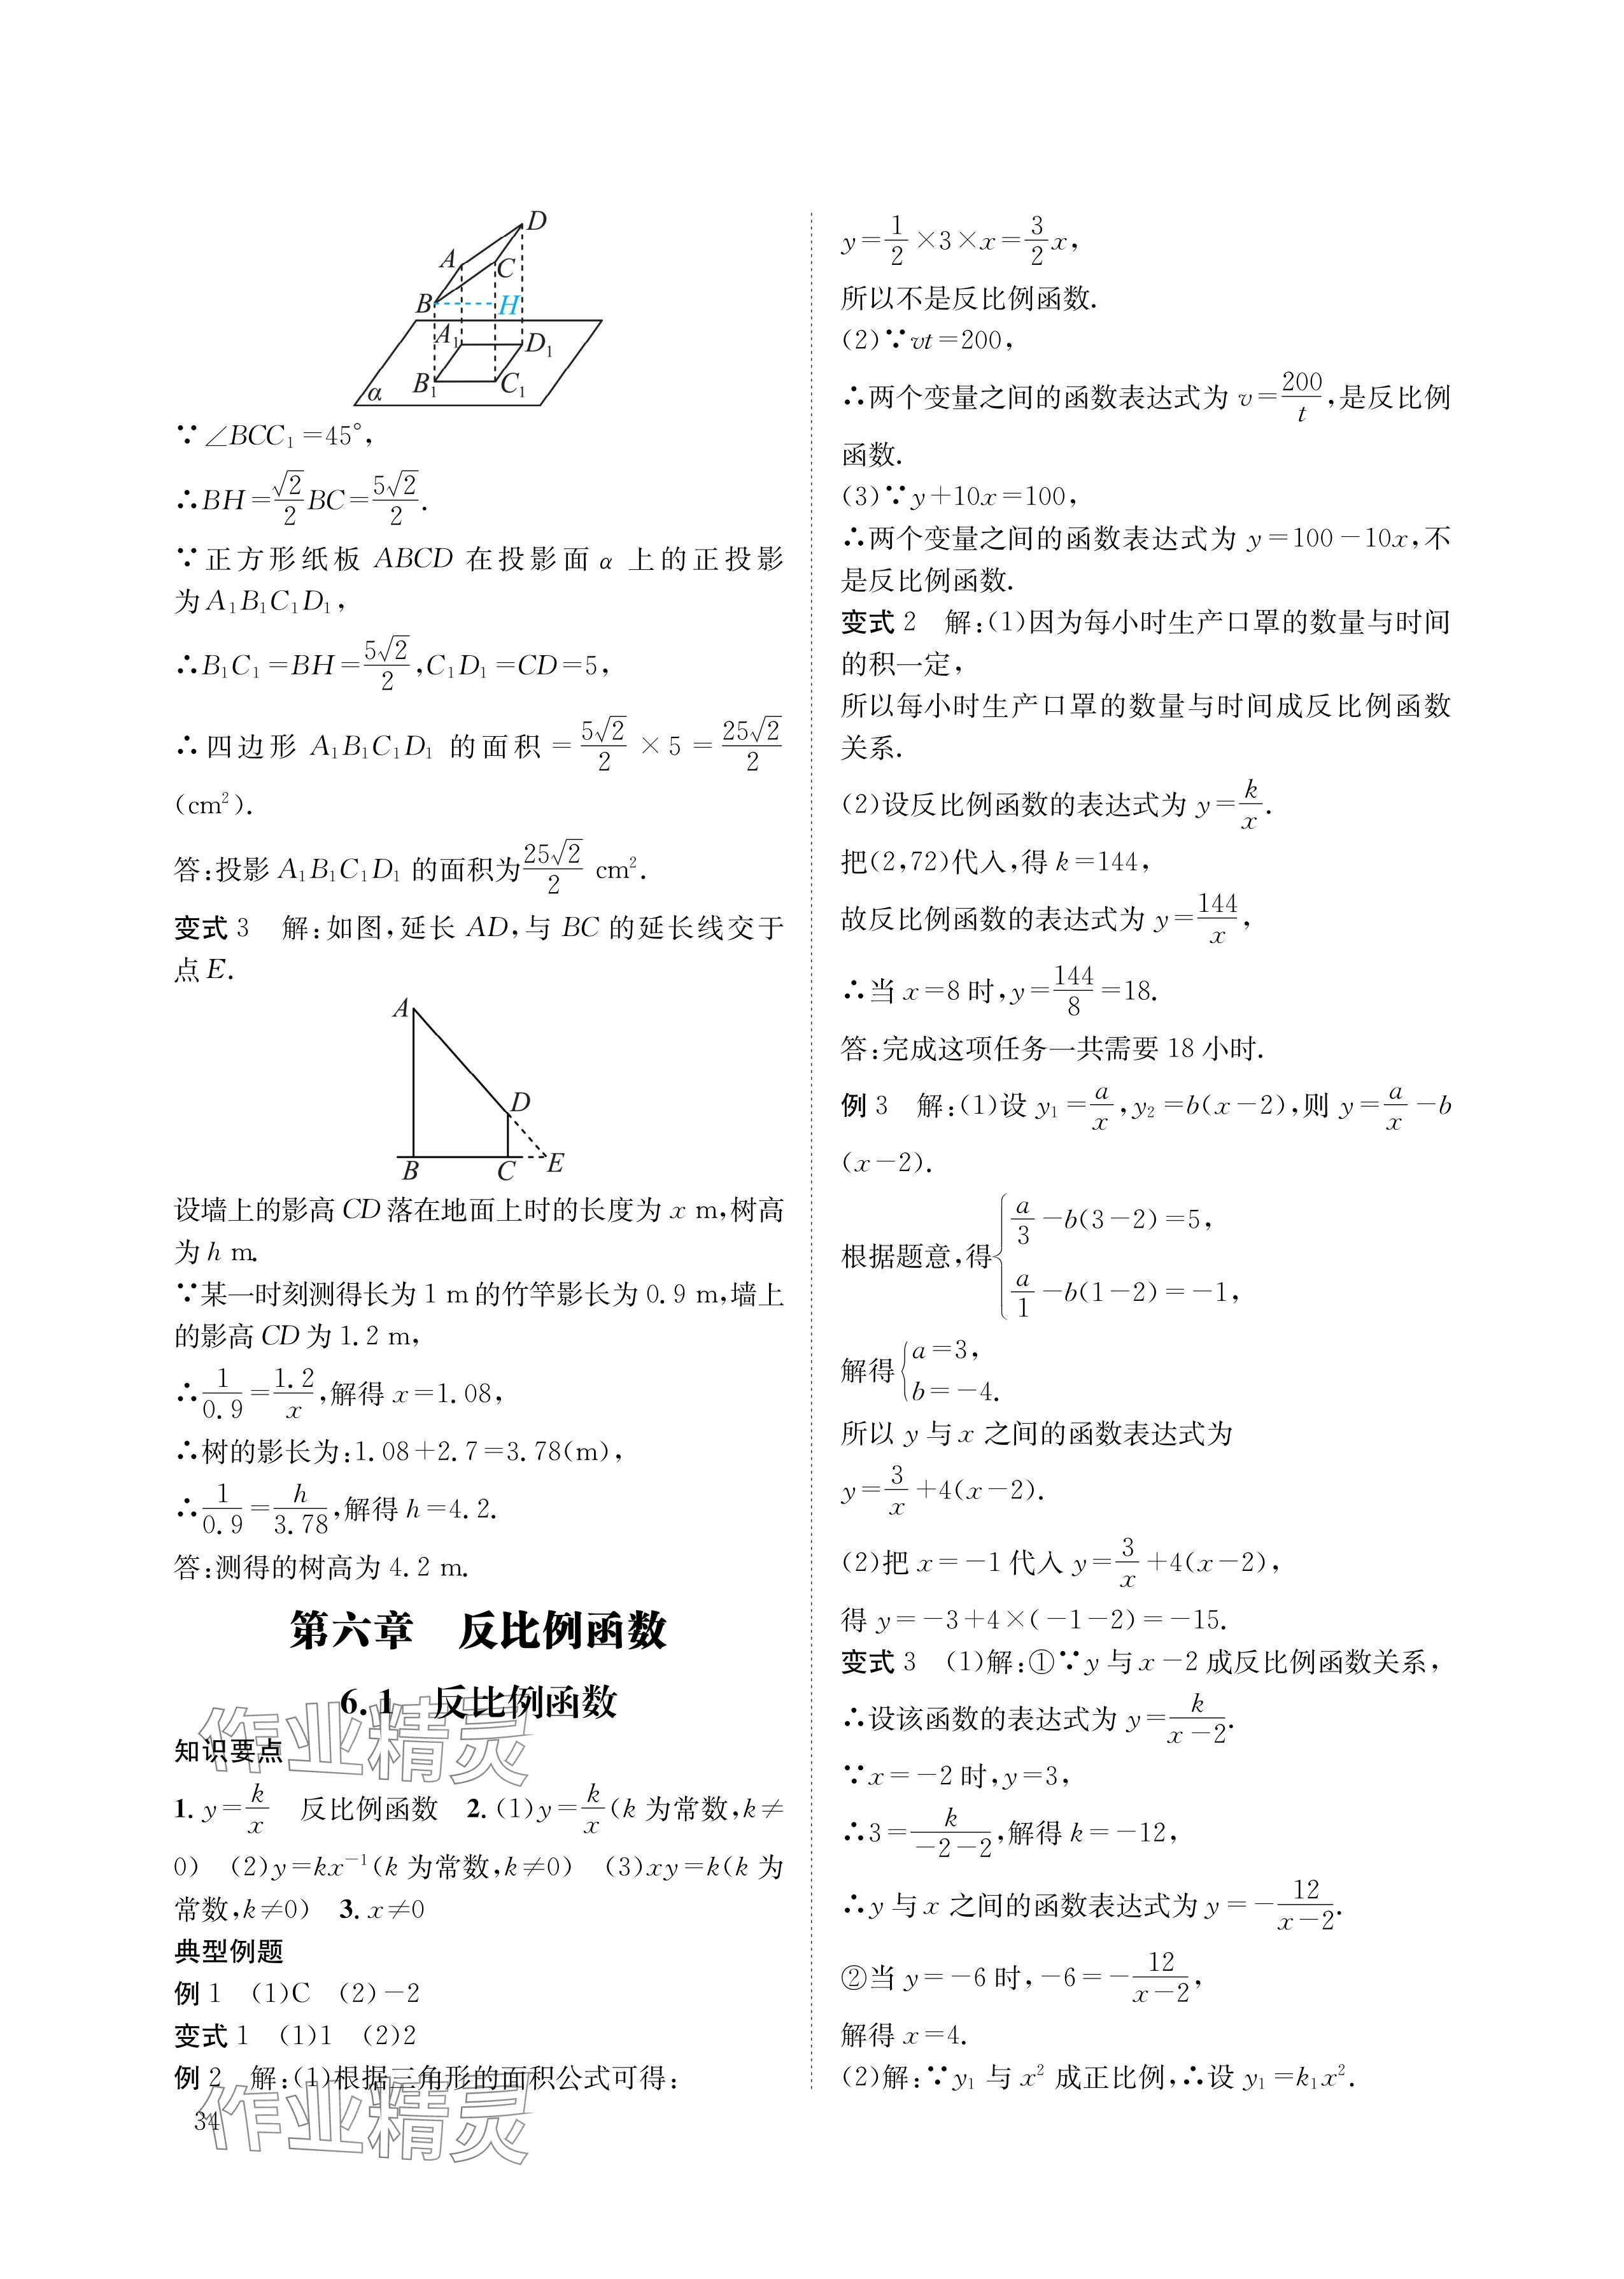 D
A
C
B
H
A₁
D₁
B₁
C₁
α
∵∠BCC₁=45°,
∴BH=√2/2 BC=5√2/2.
∵正方形纸板 ABCD 在投影面 α 上的正投影
为 A₁B₁C₁D₁,
∴B₁C₁=BH=5√2/2,C₁D₁=CD=5,
∴四边形 A₁B₁C₁D₁ 的面积=5√2/2×5=25√2/2
(cm²).
答:投影 A₁B₁C₁D₁ 的面积为25√2/2 cm².
变式 3 解:如图,延长 AD,与 BC 的延长线交于
点 E.
A
D
B
C
E
设墙上的影高 CD 落在地面上时的长度为 x m,树高
为 h m.
∵某一时刻测得长为 1 m 的竹竿影长为 0.9 m,墙上
的影高 CD 为 1.2 m,
∴1/0.9=1.2/x,解得 x=1.08,
∴树的影长为:1.08+2.7=3.78(m),
∴1/0.9=h/3.78,解得 h=4.2.
答:测得的树高为 4.2 m.
第六章 反比例函数
6.1 反比例函数
知识要点
1. y=k/x 反比例函数 2. (1)y=k/x(k 为常数,k≠
0) (2)y=kx⁻¹(k 为常数,k≠0) (3)xy=k(k 为
常数,k≠0) 3. x≠0
典型例题
例 1 (1)C (2)-2
变式 1 (1)1 (2)2
例 2 解:(1)根据三角形的面积公式可得:
34
y=1/2×3×x=3/2x,
所以不是反比例函数.
(2)∵vt=200,
∴两个变量之间的函数表达式为 v=200/t,是反比例
函数.
(3)∵y+10x=100,
∴两个变量之间的函数表达式为 y=100-10x,不
是反比例函数.
变式 2 解:(1)因为每小时生产口罩的数量与时间
的积一定,
所以每小时生产口罩的数量与时间成反比例函数
关系.
(2)设反比例函数的表达式为 y=k/x.
把(2,72)代入,得 k=144,
故反比例函数的表达式为 y=144/x,
∴当 x=8 时,y=144/8=18.
答:完成这项任务一共需要 18 小时.
例 3 解:(1)设 y₁=a/x,y₂=b(x-2),则 y=a/x-b
(x-2).
根据题意,得{a/3-b(3-2)=5,
a/1-b(1-2)=-1,
解得{a=3,
b=-4.
所以 y 与 x 之间的函数表达式为
y=3/x+4(x-2).
(2)把 x=-1 代入 y=3/x+4(x-2),
得 y=-3+4×(-1-2)=-15.
变式 3 (1)解:①∵y 与 x-2 成反比例函数关系,
∴设该函数的表达式为 y=k/(x-2).
∵x=-2 时,y=3,
∴3=k/(-2-2),解得 k=-12,
∴y 与 x 之间的函数表达式为 y=-12/(x-2).
②当 y=-6 时,-6=-12/(x-2),
解得 x=4.
(2)解:∵y₁ 与 x² 成正比例,∴设 y₁=k₁x².
作业精灵
作业精灵